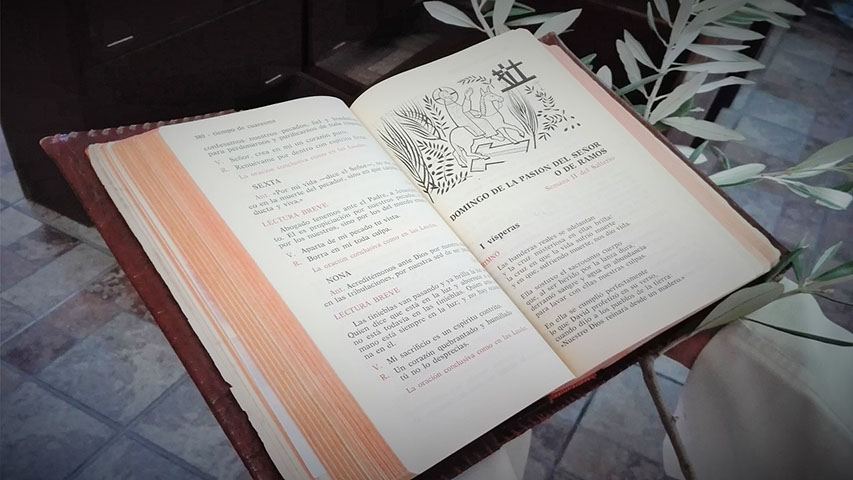 380 - tiempo de cuaresma
confesamos nuestros pecados,
para perdonarnos y purificarnos de toda
V. Señor, crea en mí un corazón puro.
R. Renuévame por dentro con espíritu firme.
La oración conclusiva como en las Laudes.
SEXTA
Ant. «Por mi vida —dice el Señor—, no
co en la muerte del pecador, sino en que
ducta y viva.»
LECTURA BREVE
Abogado tenemos ante el Padre, a Jesucristo
to. Él es propiciación por nuestros pecados
por los nuestros, sino por los del mundo entero.
V. Aparta de mi pecado tu vista.
R. Borra en mí toda culpa.
La oración conclusiva como en las Laudes.
NONA
Ant. Acreditémonos ante Dios por nuestra
en las tribulaciones, por nuestra sed de
LECTURA BREVE
Las tinieblas van pasando y ya brilla la luz
Quien dice que está en la luz y aborrece
no está todavía en las tinieblas. Quien ama
mano está siempre en la luz; y no hay
na en él.
V. Mi sacrificio es un espíritu contrito.
R. Un corazón quebrantado y humillado
tú no lo desprecias.
La oración conclusiva como en las Laudes.
DOMINGO DE LA PASION DEL SEÑOR
O DE RAMOS
Semana II del Salterio
I vísperas
HIMNO
Las banderas reales se adelantan
y la cruz misteriosa en ellas brilla:
la cruz en que la vida sufrió muerte
y en que, sufriendo muerte, nos dio vida.
Ella sostuvo el sacrosanto cuerpo
que, al ser herido por la lanza dura,
derramó sangre y agua en abundancia
para lavar con ellas nuestras culpas.
En ella se cumplió perfectamente
lo que David profetizó en su verso,
cuando dijo a los pueblos de la tierra:
«Nuestro Dios reinará desde un madero.»